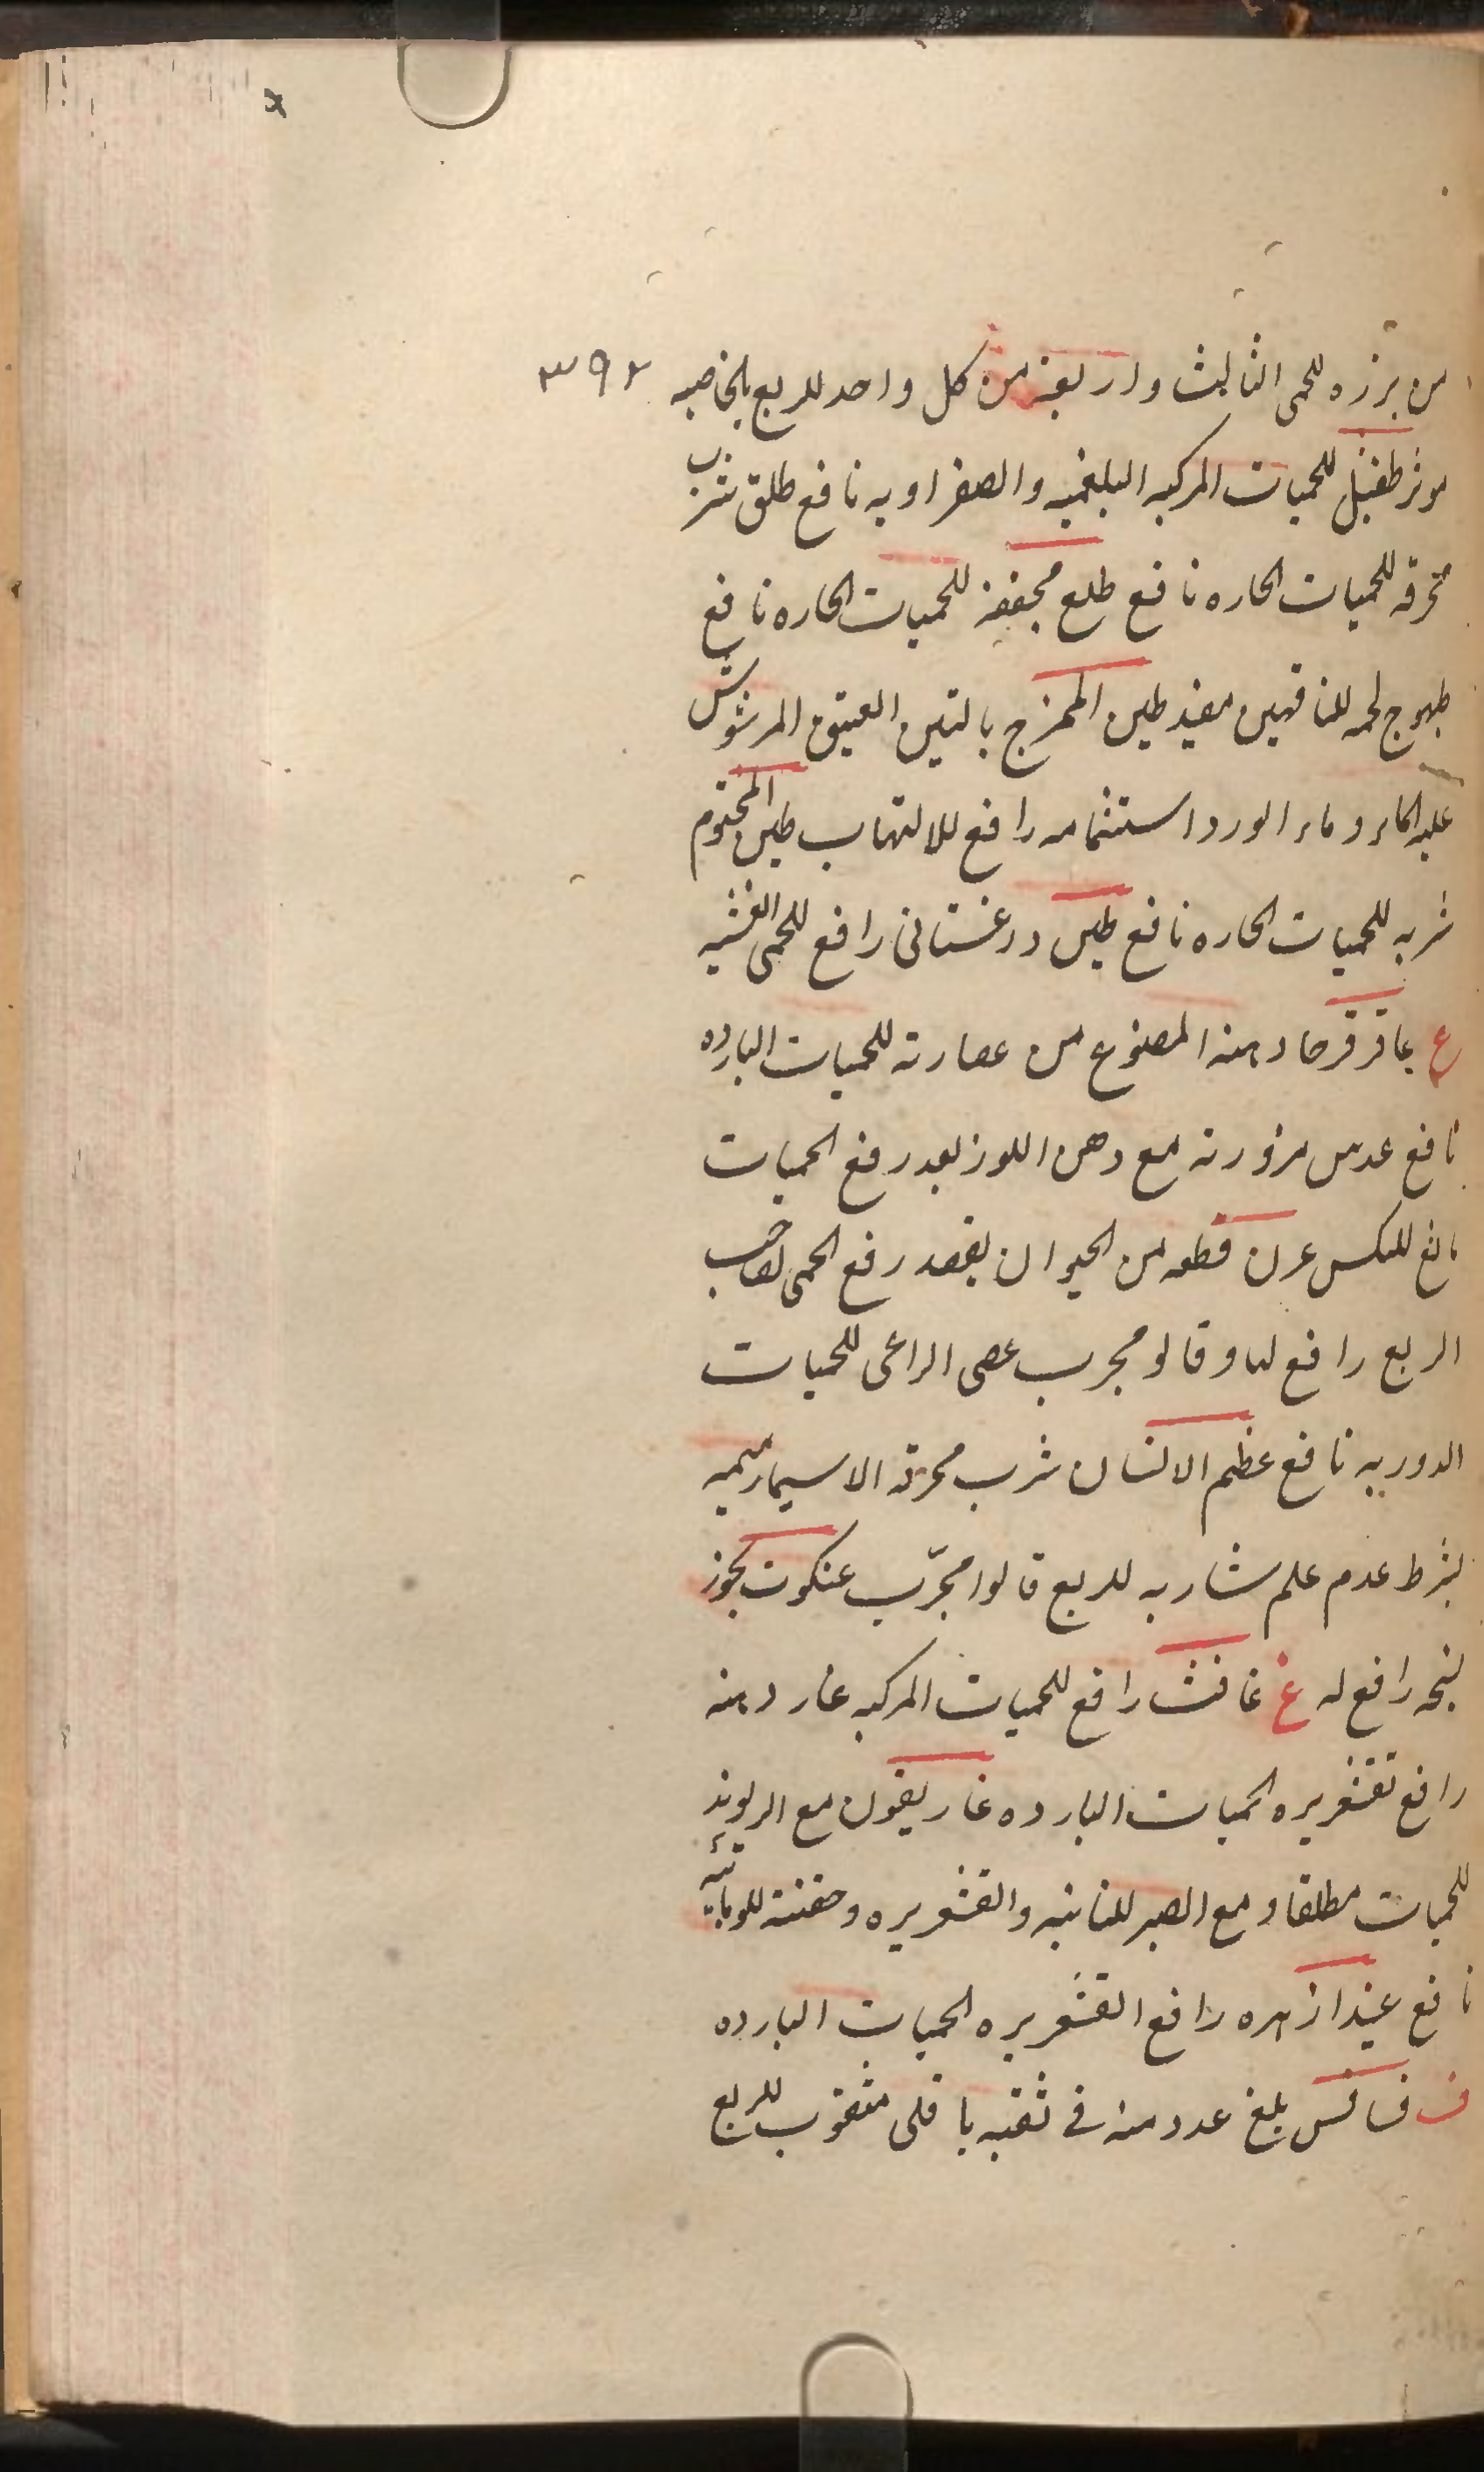 من بزره للحمى الثالث واربعة من كل واحد للربع بالخاصيه ٣٩٢
موثر طفيل للحميات المركبه البلغميه والصفراويه نافع طلق شرب
محرقه للحميات الحاره نافع طلع مجففه للحميات الحاره نافع
طيهوج لحمه للناقهين مفيد طين الممزج بالتين العتيق المرشوش
عليه الماء وماء الورد استشمامه رافع للالتهاب طين المختوم
شربه للحميات الحاره نافع طين درغستانى رافع للحمى الغشيه
ع عاقرقرحا دهنه المصنوع من عصارته للحميات البارده
نافع عدس مزورته مع دهن اللوز بعد رفع الحميات
مانع للنكس عرن قطعه من الحيوان بقصد رفع الحمى لصاحب
الربع رافع لها وقالو مجرب عصى الراعى للحميات
الدوريه نافع عظم الانسان شرب محرقه الاسيما رميمه
بشرط عدم علم شاربه للربع قالوا مجرّب عنكبوت بخور
نسجه رافع له غ غافث رافع للحميات المركبه غار دهنه
رافع قشعريره الحميات البارده غاريقون مع الريوند
للحميات مطلقا ومع الصبر للنائبه والقشعريره وحقنته للوبائيه
نافع ازهره رافع القشعريره الحميات البارده
ف فسافس بلع عدد منه فى ثقبه باقلى مثقوب للربع